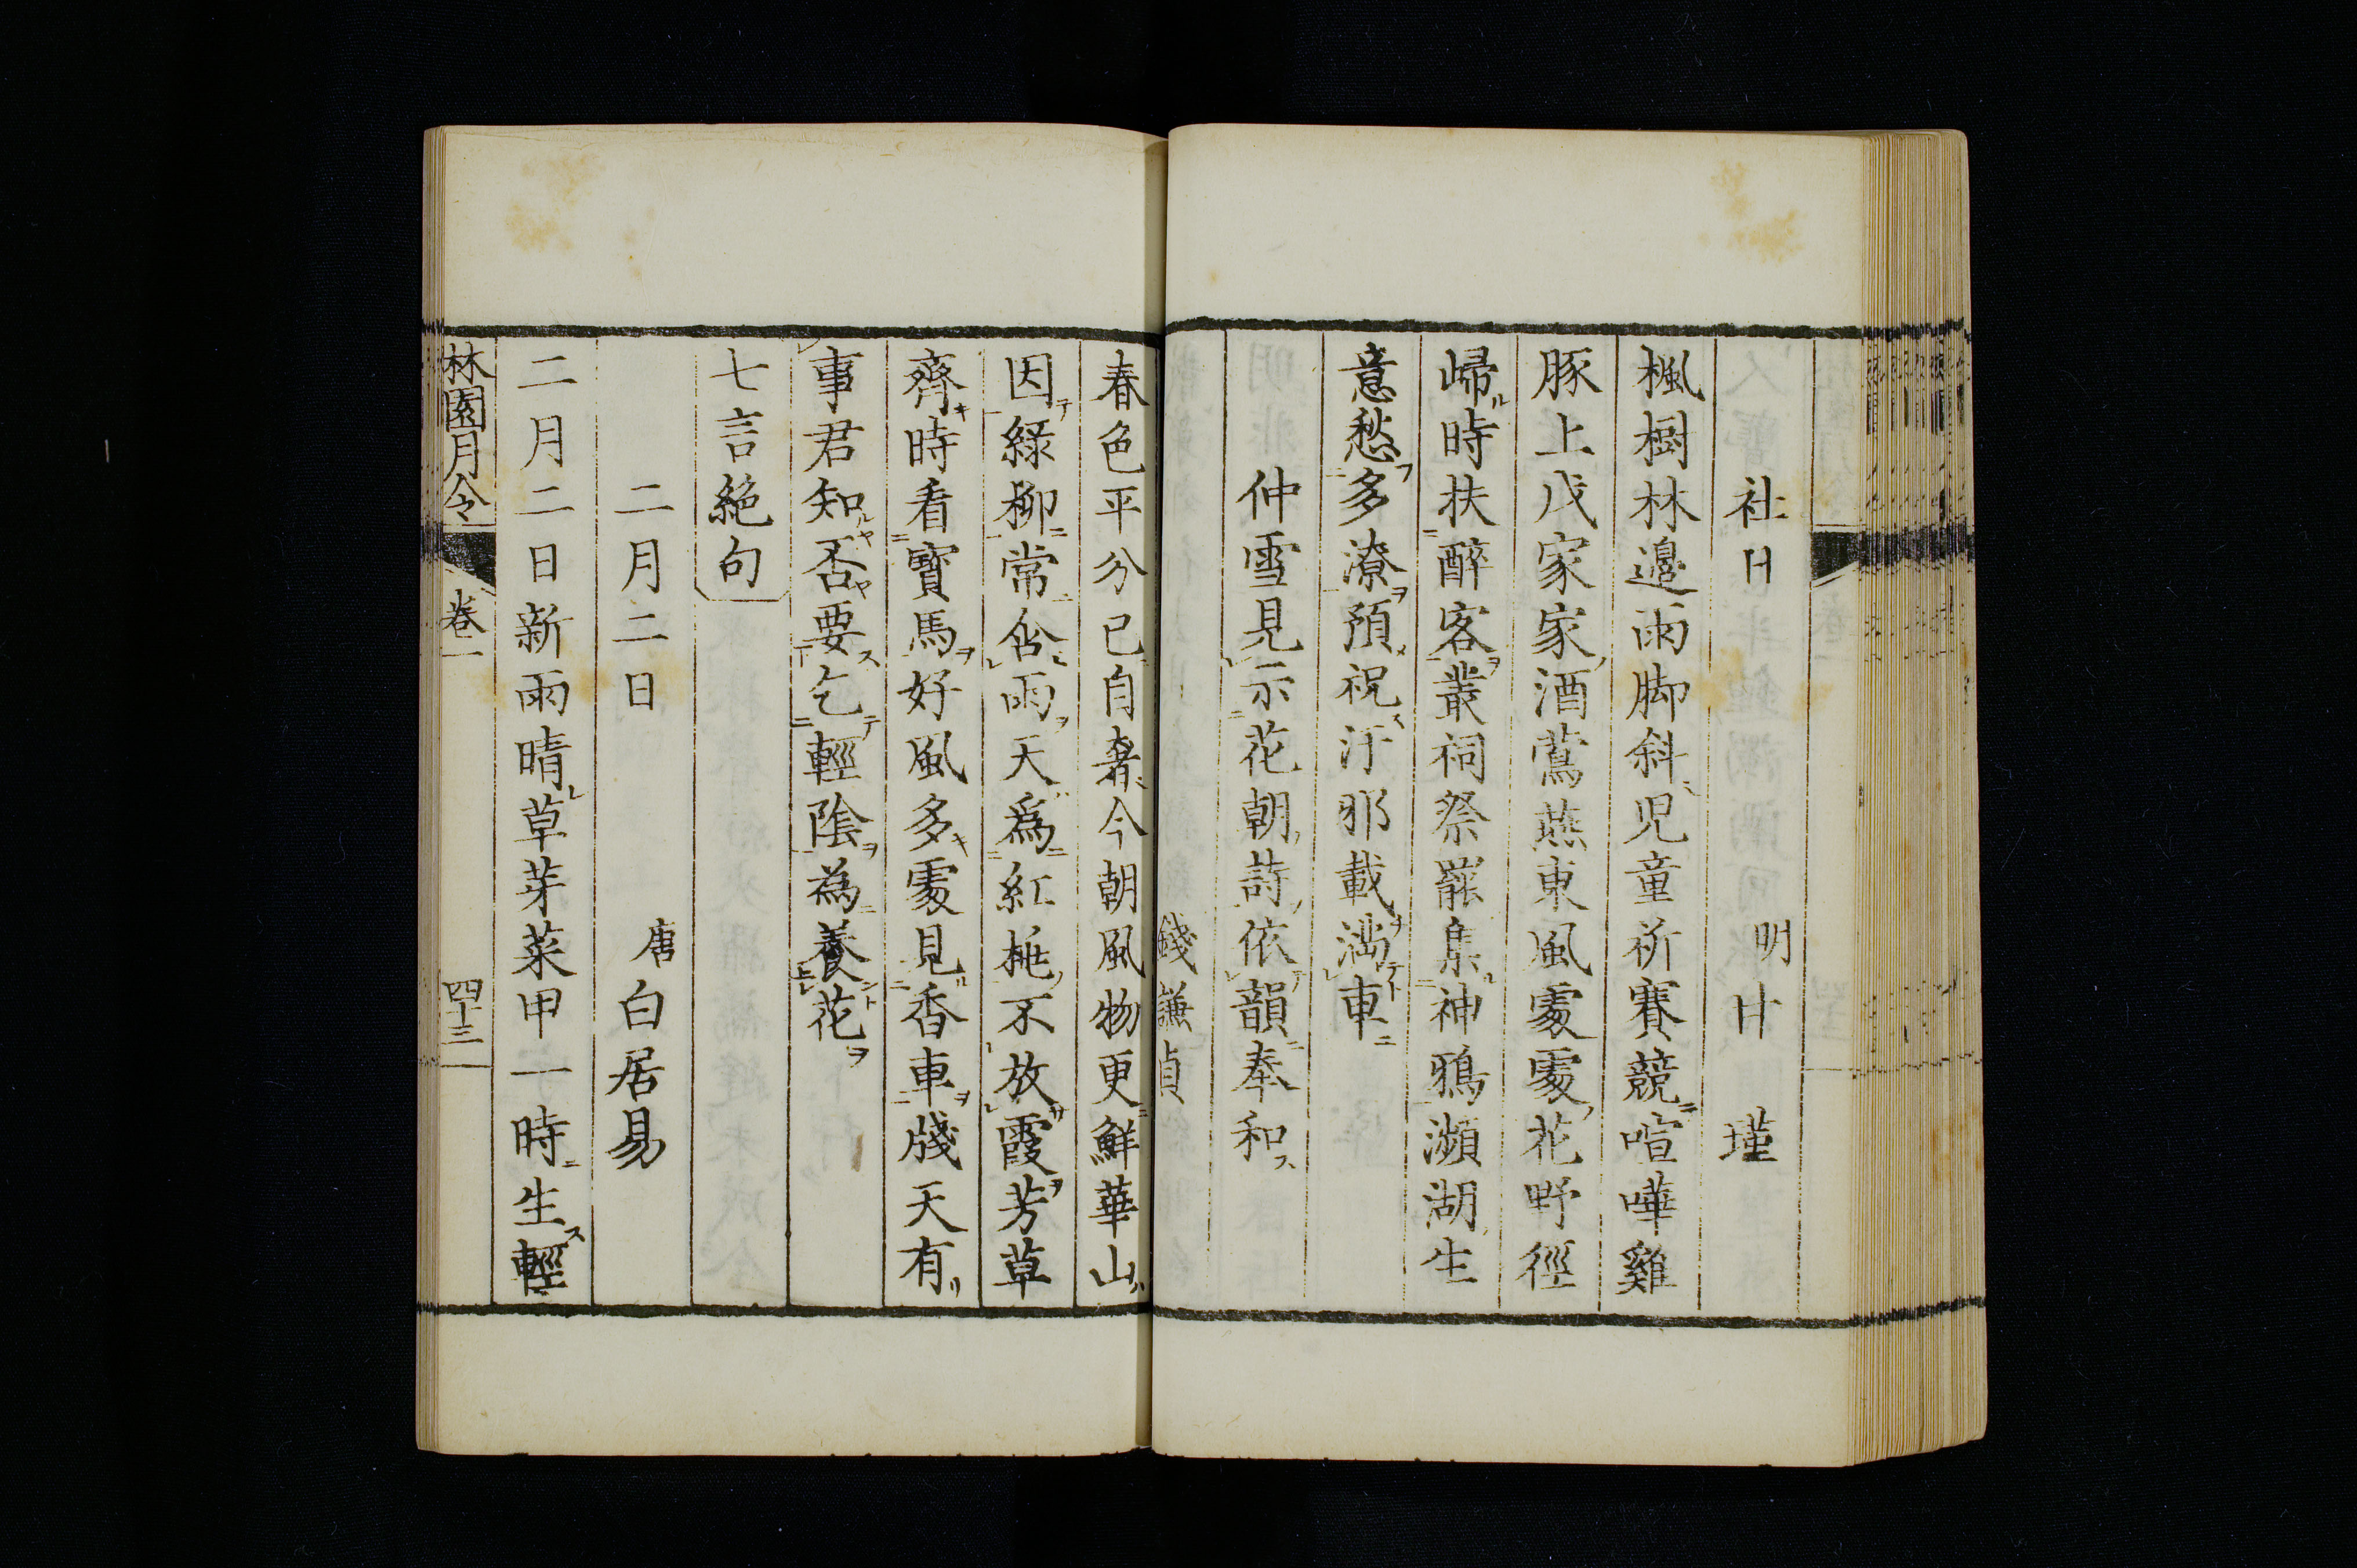 社日　明甘　瑾
楓樹林邊雨脚斜児童祈賽競喧嘩雞
豚上戊家家酒鶯燕東風處處花野徑
歸時扶醉客叢祠祭罷集神鴉瀕湖生
意愁多潦預祝汙邪載滿車
仲雪見示花朝詩依韻奉和
錢謙貞
春色平分已自奢今朝風物更鮮華山
因綠柳常含雨天爲紅桃不放霞芳草
齊時看寶馬好風多處見香車牋天有
事君知否要乞輕陰為養花
七言絶句
二月二日　唐白居易
二月二日新雨晴草芽菜甲一時生輕
林園月令　卷一　四十三